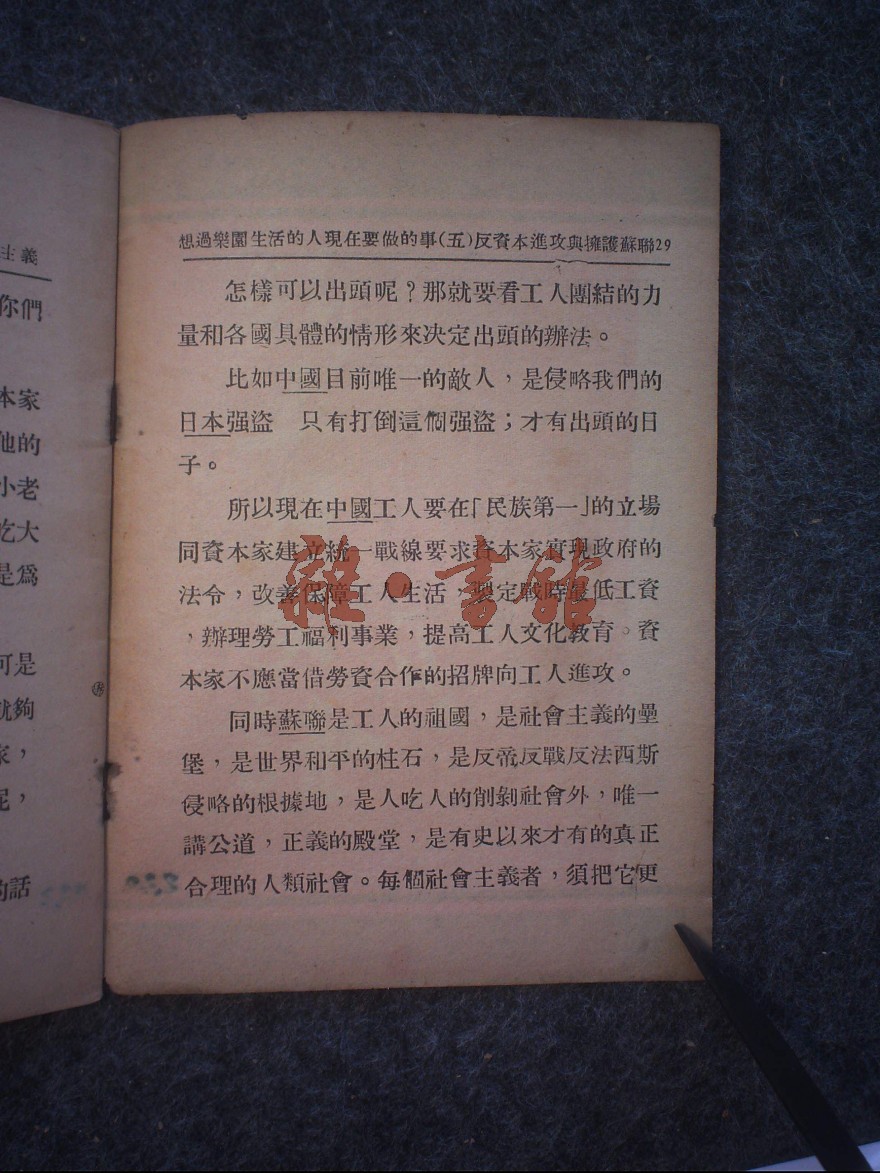 主義
你們
本家
他的
小老
吃大
是爲
可是
就夠
家，
呢，
的話
想過樂園生活的人現在要做的事(五)反資本進攻與擁護蘇聯29
怎樣可以出頭呢？那就要看工人團結的力
量和各國具體的情形來决定出頭的辦法。
比如中國目前唯一的敵人，是侵略我們的
日本强盜　只有打倒這個强盜；才有出頭的日
子。
所以現在中國工人要在「民族第一」的立場
同資本家建立統一戰線要求資本家實現政府的
法令，改善保障工人生活，製定戰時最低工資
，辦理勞工福利事業，提高工人文化教育。資
本家不應當借勞資合作的招牌向工人進攻。
同時蘇聯是工人的祖國，是社會主義的壘
堡，是世界和平的柱石，是反帝反戰反法西斯
侵略的根據地，是人吃人的削剝社會外，唯一
講公道，正義的殿堂，是有史以來才有的真正
合理的人類社會。每個社會主義者，須把它更
雜·書館